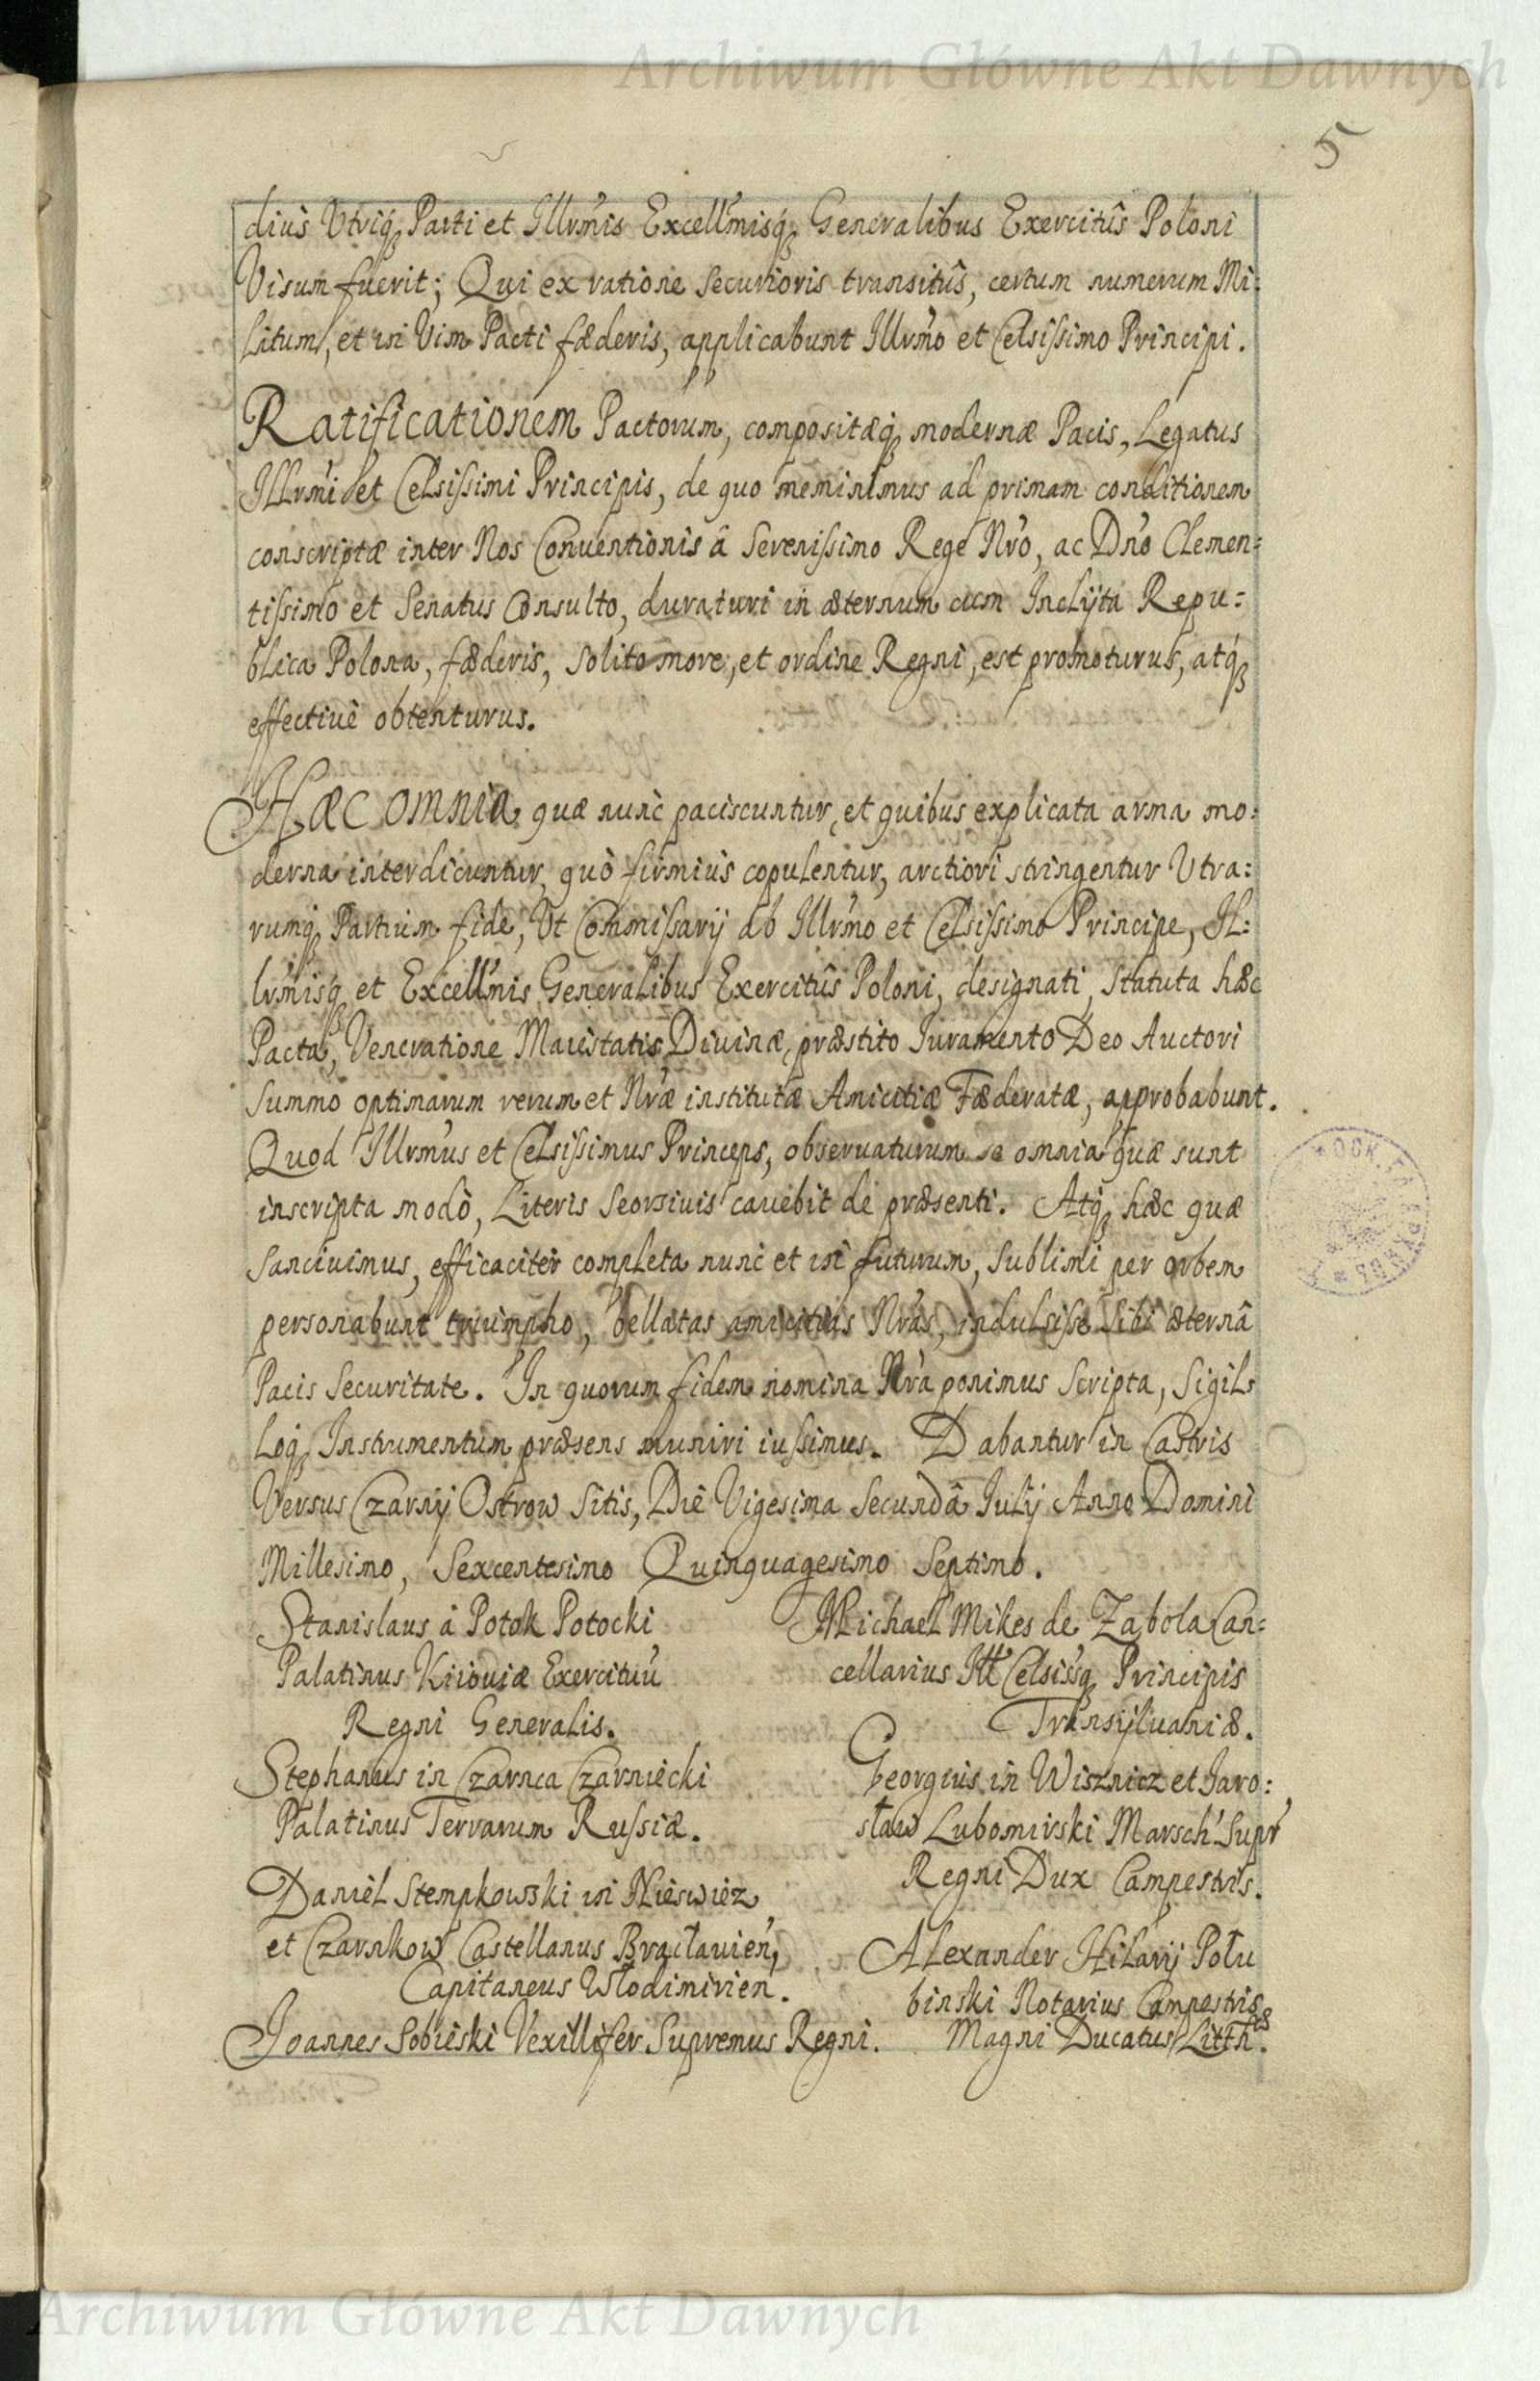 Archiwum Główne Akt Dawnych
5
diùs Vtriq; Parti et Illrm̃is Excell̃misq; Generalibus Exercitûs Poloni
Visum fuerit; Qui ex ratione securioris transitûs, certum numerum Mi:
litum, et in Vim Pacti fæderis, applicabunt Illrm̃o et Celsissimo Principi.
Ratificationem Pactorum, compositæq; modernæ Pacis, Legatus
Illrm̃i et Celsissimi Principis, de quo meminimus ad primam conditionem
conscriptæ inter Nos Conuentionis â Serenissimo Rege Nrõ, ac Dnõ Clemen:
tissimo et Senatus Consulto, duraturi in æternum cum Inclÿta Repu:
blica Polona, fæderis, solito more, et ordine Regni, est promoturus, atq;
effectiuè obtenturus.
HÆC OMNIA quæ nunc paciscuntur, et quibus explicata arma mo:
derna interdicuntur, quò firmiùs copulentur, arctiori stringentur Vtra:
rumq; Partium fide, Vt Commissarij ab Illrm̃o et Celsissimo Principe, Il:
lrm̃isq; et Excell̃mis Generalibus Exercitûs Poloni, designati, statuta hæc
Pacta, Veneratione Maiestatis Diuinæ, præstito Iuramento Deo Auctori
Summo optimarum rerum et Nrẽ institutæ Amicitiæ Fæderatæ, approbabunt.
Quod Illrm̃us et Celsissimus Princeps, obseruaturum se omnia quæ sunt
inscripta modò, Literis Seorsiuis cauebit de præsenti. Atq; hæc quæ
Sanciuimus, efficaciter completa nunc et in futurum, sublimi per orbem
personabunt triumpho, bellatas amicitias Nrãs, indulsisse sibi æternâ
Pacis Securitate. In quorum fidem nomina Nrã ponimus Scripta, Sigil:
loq; Instrumentum præsens muniri iussimus. Dabantur in Castris
Versus Czarnÿ Ostrow Sitis, Diê Vigesima Secundâ Iulij Anno Domini
Millesimo, Sexcentesimo Quinquagesimo Septimo.
Stanislaus à Potok Potocki
Palatinus Kiiouiæ Exercituũ
Regni Generalis.
Stephanus in Czarnca Czarniecki
Palatinus Terrarum Russiæ.
Daniel Stempkowski in Nieswiez
et Czarnkow Castellanus Bracłauieñ,
Capitaneus Włodimirieñ.
Joannes Sobieski Vexillifer Supremus Regni.
Michael Mikes de Zabola Can:
cellarius Ill̃ Celsissq; Principis
Transÿluaniæ.
Georgius in Wisznicz et Jaro:
sław Lubomirski Marsch' Supr̃
Regni Dux Campestris.
Alexander Hilarÿ Połu
binski Notarius Campestris
Magni Ducatus Litthæ.
Archiwum Główne Akt Dawnych